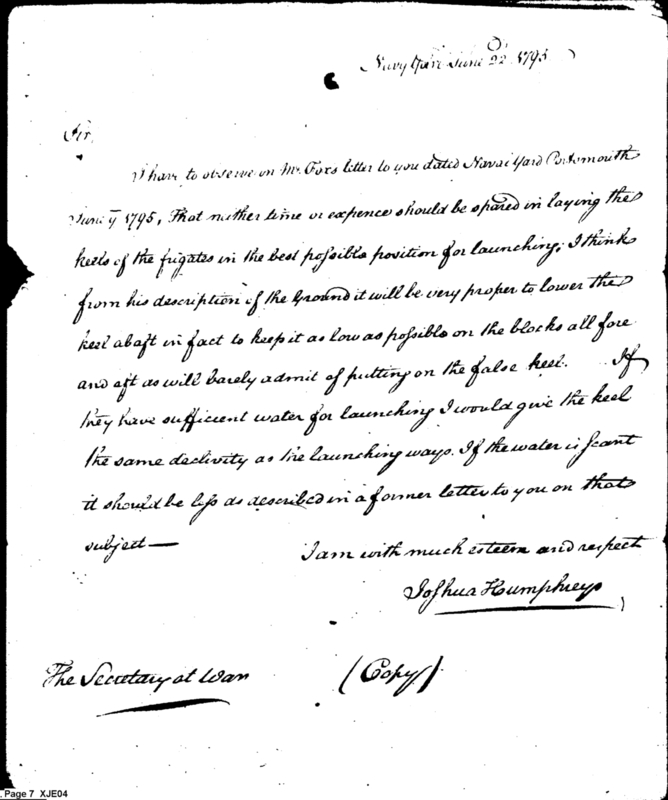 Navy Yard June 22d 1795
Sir,
I have to observe on Mr. Foxs letter to you dated Naval Yard Portsmouth
June 1795, That neither time or expence should be spared in laying the
keels of the frigates in the best possible position for launching; I think
from his description of the Ground it will be very proper to lower the
keel abaft in fact to keep it as low as possible on the blocks all fore
and aft as will barely admit of putting on the false keel. If
they have sufficient water for launching I would give the keel
the same declivity as the launching ways. If the water is scant
it should be less as described in a former letter to you on that
subject —
I am with much esteem and respect
Joshua Humphreys
The Secretary at War
(Copy)
. Page 7 XJE04